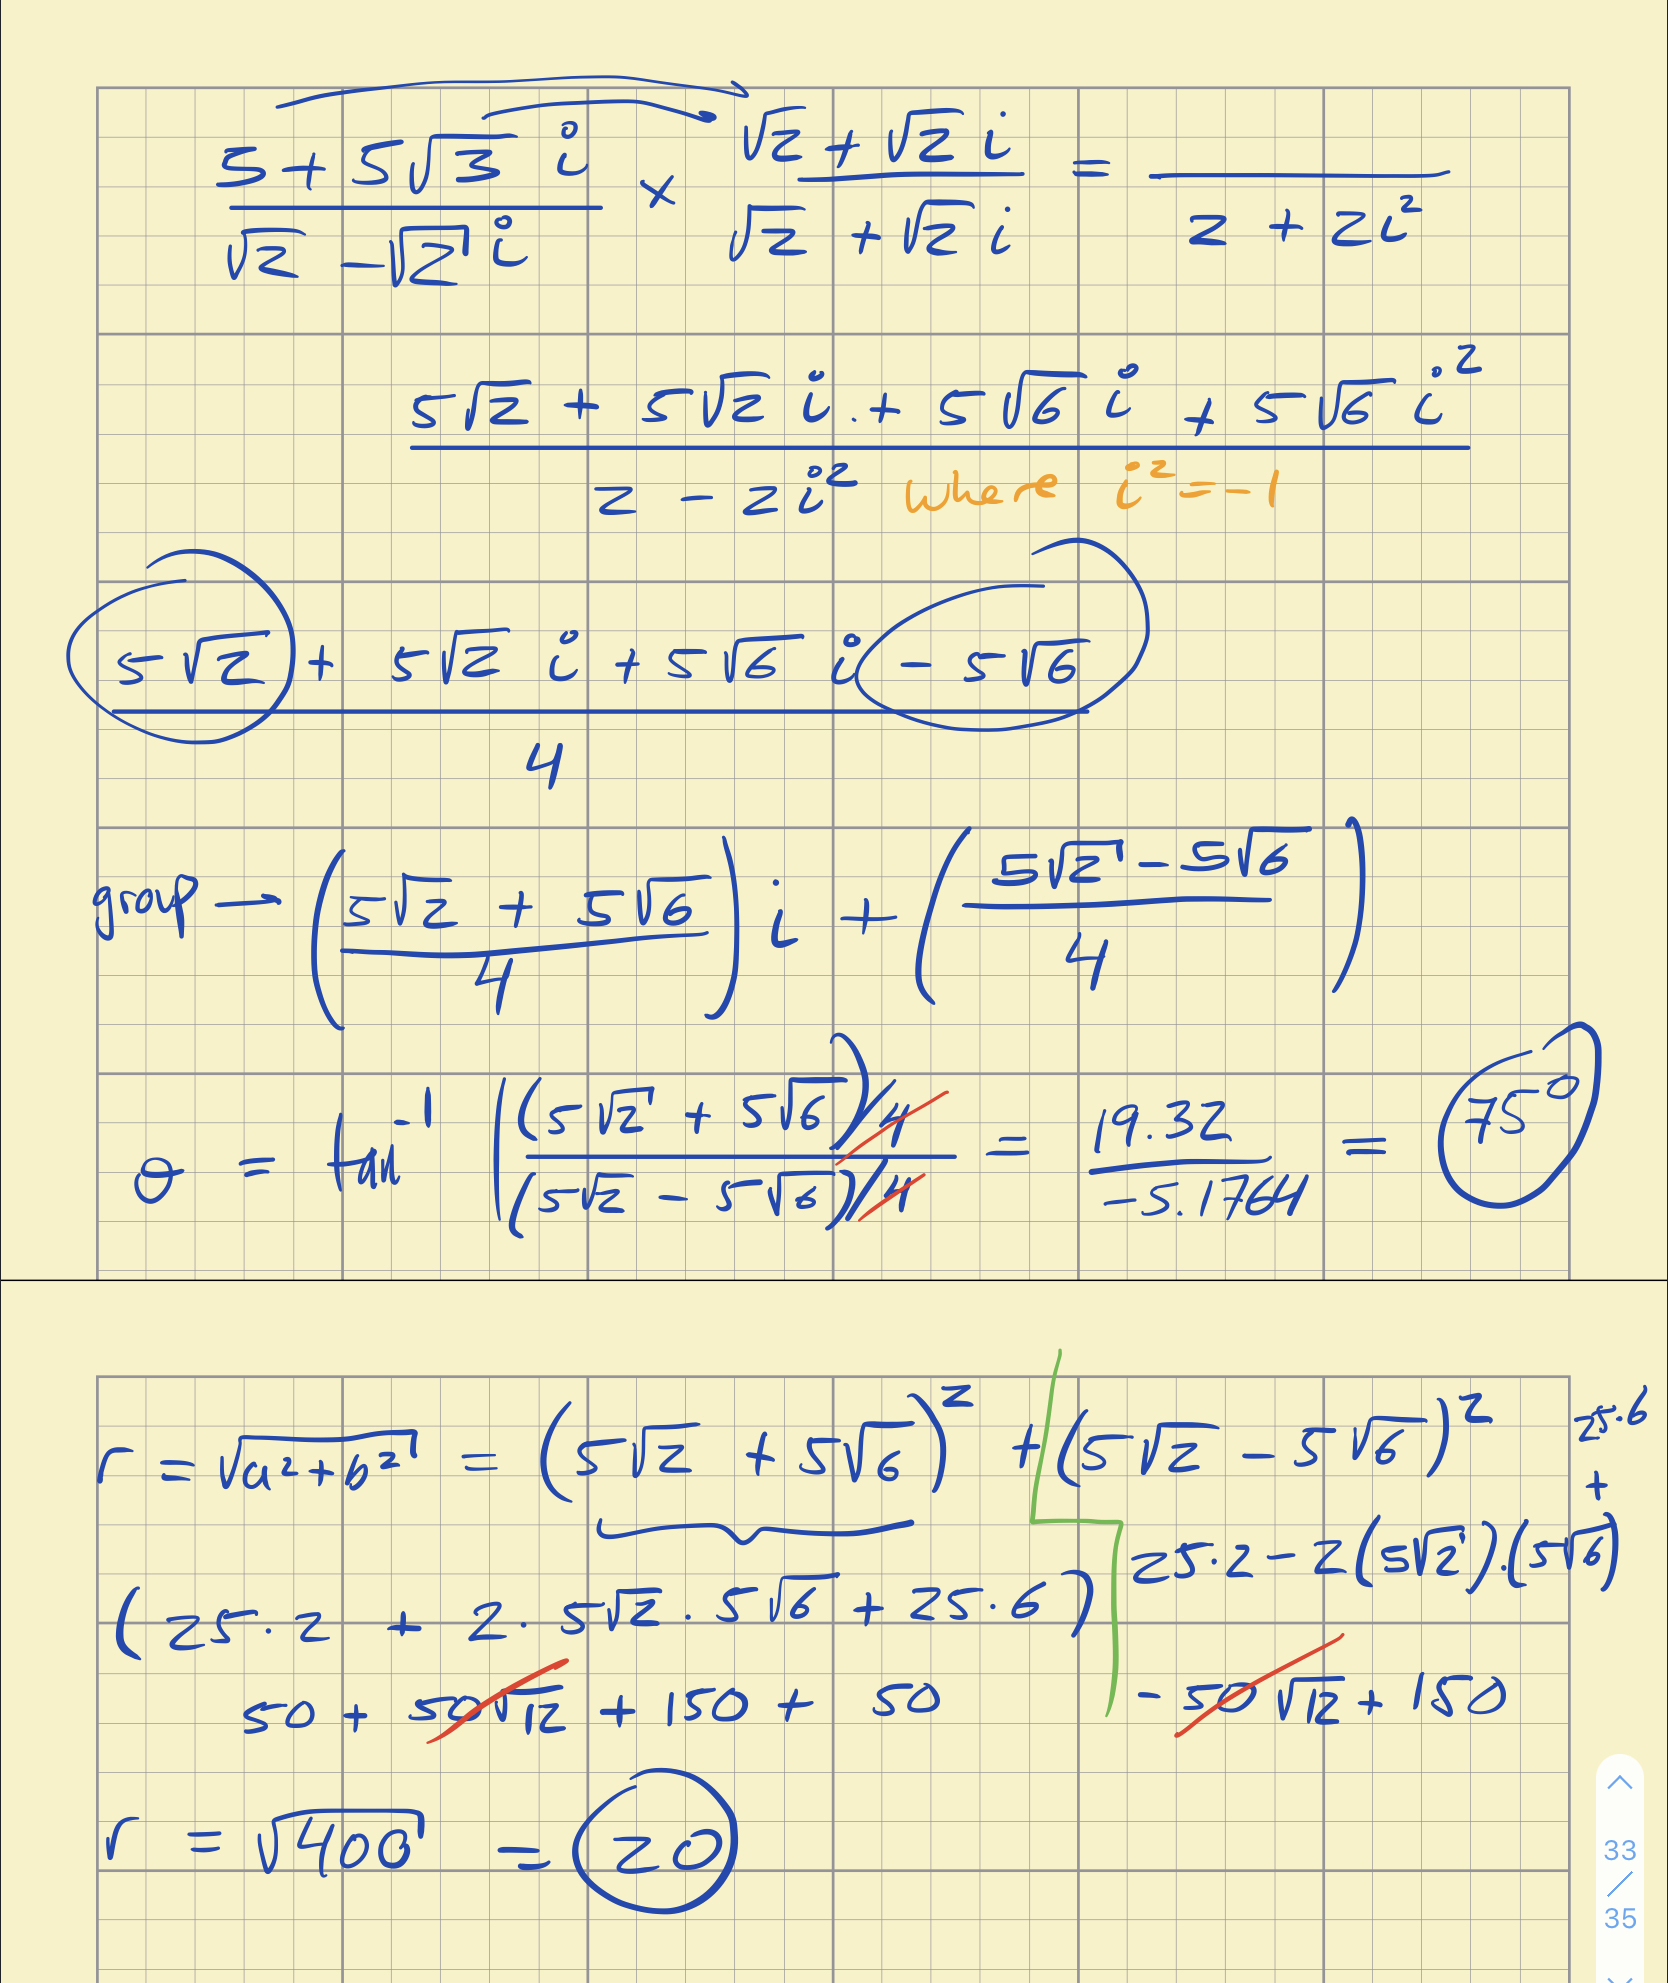 5 + 5√3 i / √2 - √2 i × √2 + √2 i / √2 + √2 i = / 2 + 2i²
5√2 + 5√2 i + 5√6 i + 5√6 i²
2 - 2i² where i² = -1
5√2 + 5√2 i + 5√6 i - 5√6
4
group → (5√2 + 5√6 / 4) i + (5√2 - 5√6 / 4)
θ = tan⁻¹ ((5√2 + 5√6)/4 / (5√2 - 5√6)/4) = 19.32 / -5.1764 = 75°
r = √a² + b² = (5√2 + 5√6)² + (5√2 - 5√6)²
25·2 - 2(5√2)·(5√6) + 25·6
(25·2 + 2·5√2·5√6 + 25·6)
50 + 50√12 + 150 + 50 - 50√12 + 150
r = √400 = 20
33
/
35